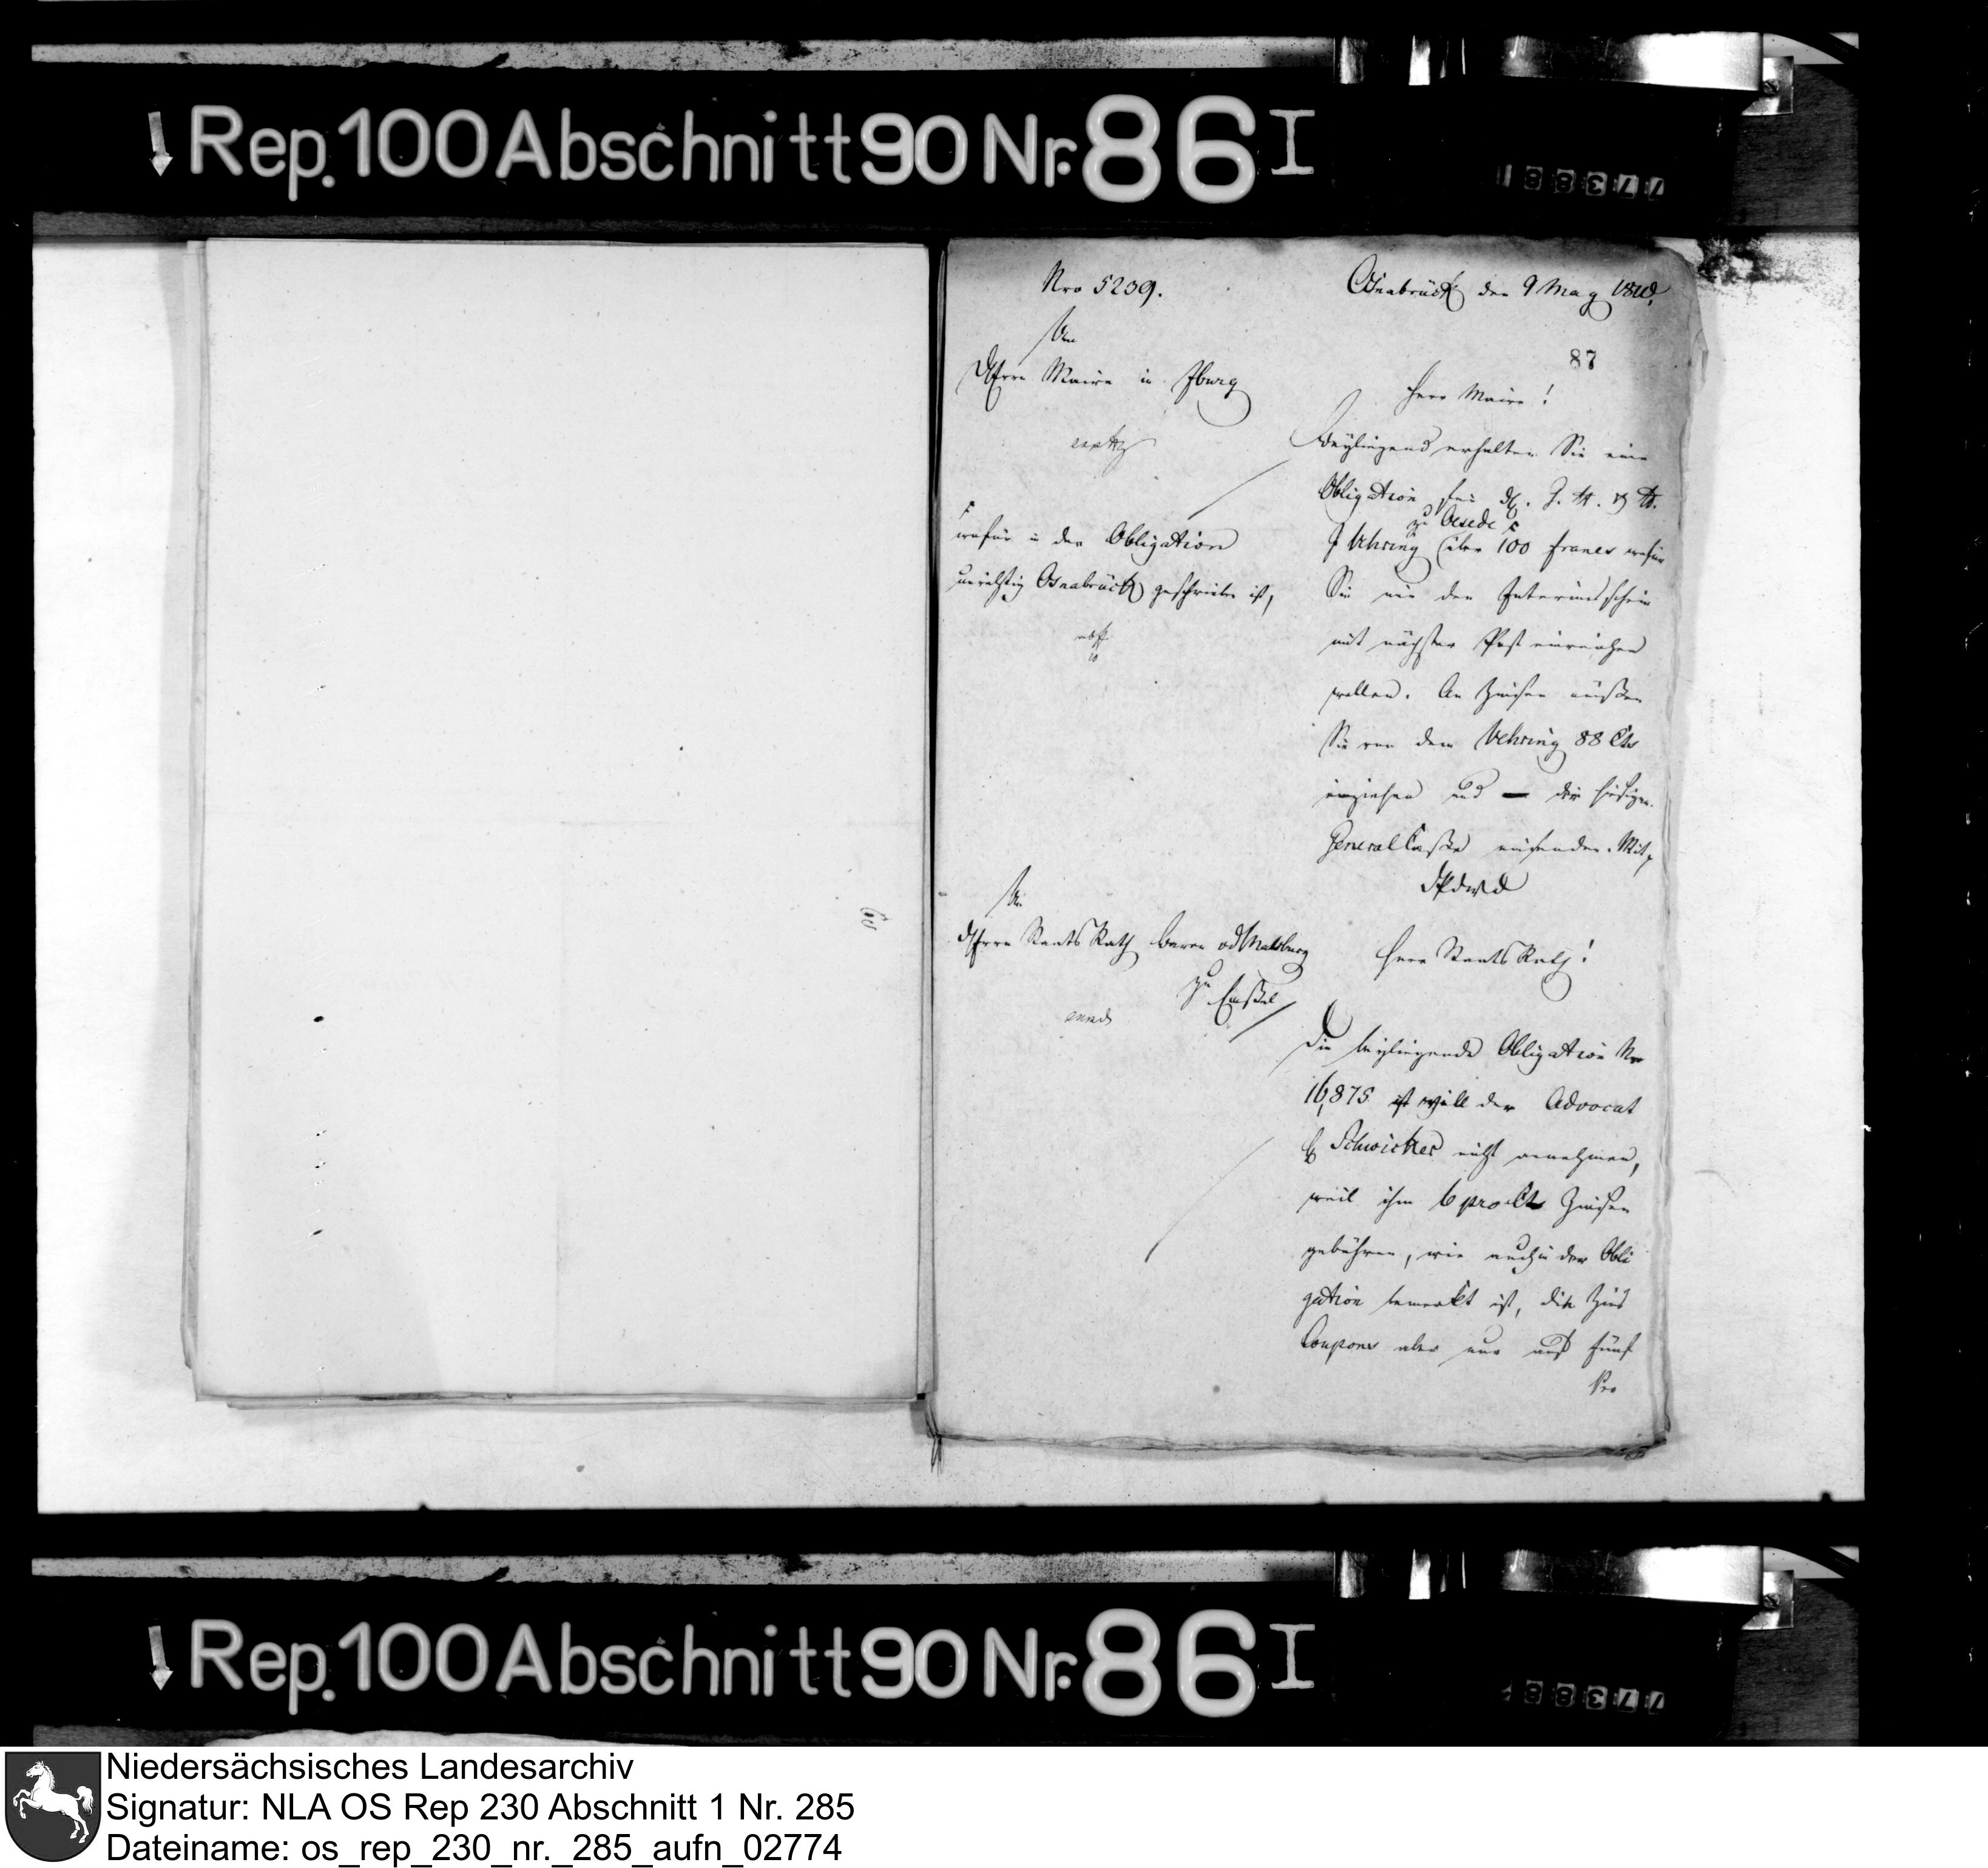 Rep. 100 Abschnitt 90 Nr. 86 I
Nro 5239.
Osnabrück den 9 May 1810.
87
An
Herrn Maire in Iburg
Herr Maire!
Beyliegend erhalten Sie eine
Obligation für
zu Oesede
Vehring über 100 francs wofür
Sie mir den Interimsschein
mit nächster Post einreichen
wollen. An Zinsen müßen
Sie von dem Vehring 88 Cts
einziehen und der hiesigen
General Casse einsenden. Mit
wofür in der Obligation
unrichtig Osnabrück geschrieben ist,
An
Herrn Staats Rath Baron v d Malsburg
zu Cassel
Herr Staats Rath!
Die beyliegende Obligation Nro
16,875 will der Advocat
Schwicker nicht annehmen,
weil ihm 6 pro Ct Zinsen
gebühren, wie auch in der Obli
gation bemerkt ist, die Zins
Coupons aber nur auf fünf
Pro
60
Rep. 100 Abschnitt 90 Nr. 86 I
Niedersächsisches Landesarchiv
Signatur: NLA OS Rep 230 Abschnitt 1 Nr. 285
Dateiname: os_rep_230_nr._285_aufn_02774